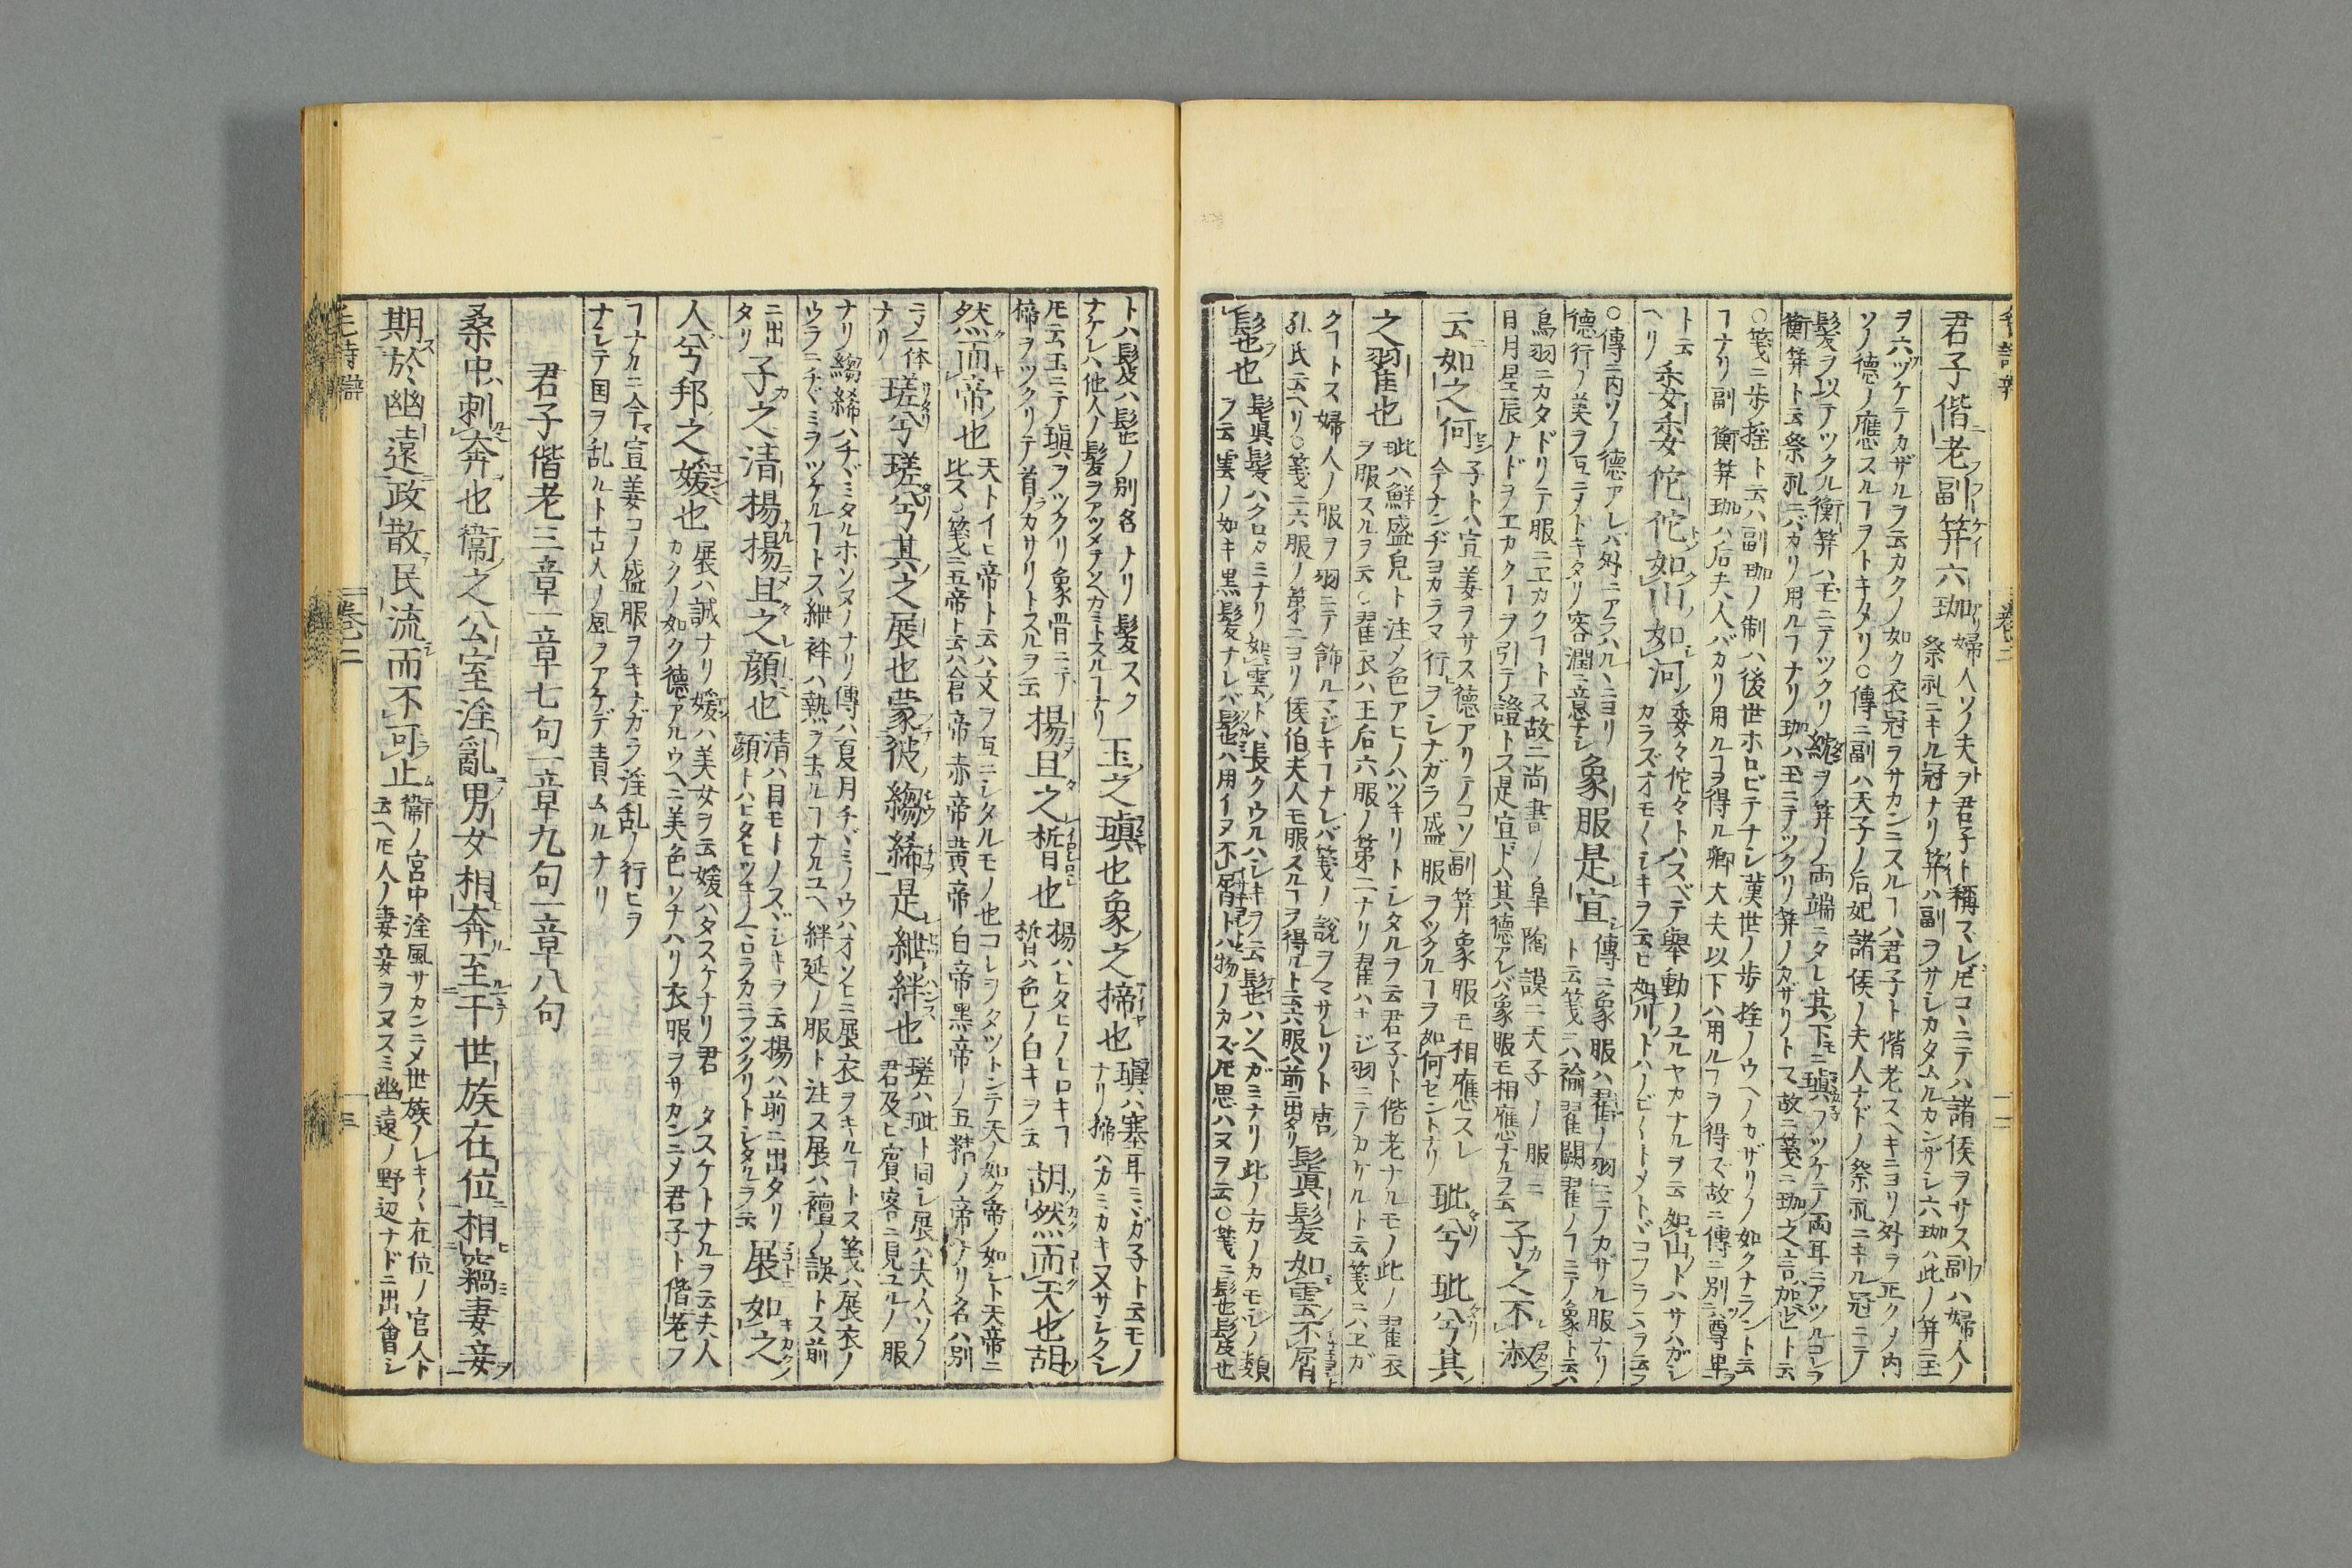 君子偕老副笄六珈
婦人ソノ夫ヲ君子ト稱スレ𪜈コヽニテハ諸侯ヲサス副ハ婦人ノ
祭礼ニキル冠ナリ笄ハ副ヲサシカタムルカンザシ六珈ハ此ノ笄ニ玉
ヲ六ヅケテカザルヲ云カクノ如ク衣冠ヲサカンニスルヿハ君子ト偕老スヘキニヨリ外ヲ正クメ内
ソノ德ノ應スルヿヲトキタリ○傳ニ副ハ天子ノ后妃諸侯ノ夫人ナドノ祭礼ニキル冠ニテ
髪ヲ以テツクル衡笄ハ玉ニテツクリ紞ヲ笄ノ両端ニタレ其下ニ瑱ヲツケテ両耳ニアツルコレヲ
衡笄ト云祭礼ニバカリ用ルヿナリ珈ハ玉ニテツクリ笄ノカザリトス故ニ箋ニ珈之言加也ト云
○箋ニ歩揺ト云ハ副珈ノ制ハ後世ホロビテナシ漢世ノ歩揺ノウヘノカザリノ如クナラント云
ヿナリ副衡笄珈ハ后夫人バカリ用ルヿヲ得ル卿大夫以下ハ用ルヿヲ得ズ故ニ傳ニ別尊卑
ト云
ヘリ
委委佗佗如山如河
委々佗々トハスベテ舉動ノユルヤカナルヲ云如山トハサハガシ
カラズオモ〳〵シキヲ云ヒ如川トハ
○傳ニ内ソノ德アレバ外ニアラハルヽニヨリ
德行ノ美ヲ互ニメトキタリ容潤ニ意ナシ
象服是宜
傳ニ象服ハ翟ノ羽ニテカザル服ナリ
ト云箋ニハ褕翟闕翟ノヿニテ象ト云ハ
鳥羽ニカタドリテ服ニヱカクヿトス故ニ尚書ノ皐陶謨ニ天子ノ服ニ
日月星辰ナドヲエカクヿヲ引テ證トス是宜トハ其德アレバ象服モ相應ナルヲ云
子之不淑
云如之何
子トハ宣姜ヲサス德アリテコソ副笄象服モ相應スレ
今ナンヂヨカラヌ行ヲシナガラ盛服ヲツクルヿヲ如何セントナリ
玼兮玼兮其
之翟也
玼ハ鮮盛皃ト注メ色アヒノハツキリトシタルヲ云君子ト偕老ナルモノ此ノ翟衣
ヲ服スルヲ云○翟衣ハ王后六服ノ第二ナリ翟ハキジ羽ニテカケルト云箋ニハヱガ
クヿトス婦人ノ服ヲ羽ニテ飾ルマジキヿナレバ箋ノ説ヲマサレリト唐
孔氏云ヘリ○箋ニ六服ノ第二ヨリ侯伯夫人モ服スルヿヲ得ルト云六服ハ前ニ出タリ
鬒髮如雲不屑
髢也
鬒髮ハクロカミナリ如雲トハ長クウルハシキヲ云髢ハソヘガミナリ此ノ方ノカモジノ類
ヲ云雲ノ如キ黒髮ナレバ髢ハ用イヌ不屑トハ物ノカズ𪜈思ハヌヲ云○箋ニ髢髲也
トハ髲ハ髢ノ別名ナリ髮スク
ナケレハ他人ノ髮ヲアツメテソヘガミトスルヿナリ
玉之瑱也象之揥也
瑱ハ塞耳ミヽガ子ト云モノ
ナリ揥ハカミカキ又サシクシ
𪜈云玉ニテ瑱ヲツクリ象骨ニテ
揥ヲツクリテ首ノカサリトスルヲ云
揚且之晳也
揚ハヒタヒノヒロキヿ
晳ハ色ノ白キヲ云
胡然而天也胡
然而帝也
天トイヒ帝ト云ハ文ヲ互ニシタルモノ也コレヲタツトンテ天ノ如ク帝ノ如シト天帝ニ
比ス○箋ニ五帝ト云ハ倉帝赤帝黄帝白帝黒帝ノ五精ノ帝ナリ名ハ別
ニメ一体
ナリ
瑳兮瑳兮其之展也蒙彼縐絺是紲絆也
瑳ハ玼ト同シ展ハ夫人ソノ
君及ヒ賓客ニ見ユルノ服
ナリ縐絺ハチヾミタルホソヌノナリ傳ハ夏月チヾミノウハオソヒニ展衣ヲキルヿトス箋ハ展衣ノ
ウラニチヾミヲツケルヿトス紲袢ハ熱ヲ去ルヿナルユヘ絆延ノ服ト注ス展ハ襢ノ誤トス前
ニ出
タリ
子之清揚揚且之顔也
清ハ目モトノスヾシキヲ云揚ハ前ニ出タリ
顔トハヒタヒツキノ
展如之
人兮邦之媛也
展ハ誠ナリ媛ハ美女ヲ云媛ハタスケナリ君 タスケトナルヲ云夫人
カクノ如ク德アルウヘニ美色ソナハリ衣服ヲサカンニメ君子ト偕老フ
ヿナルニ今マ宣姜コノ盛服ヲキナガラ淫乱ノ行ヒヲ
ナレテ国ヲ乱ルト古人ノ風ヲアケデ責ムルナリ
君子偕老三章一章七句一章九句一章八句
桑中刺奔也衞之公室淫亂男女相奔至于世族在位相竊妻妾
期於幽遠政散民流而不可止
衞ノ宮中淫風サカンニメ世族ノレキ〳〵在位ノ官人ト
云ヘ𪜈人ノ妻妾ヲヌスミ幽遠ノ野辺ナドニ出會シ
毛詩辯
卷二
三